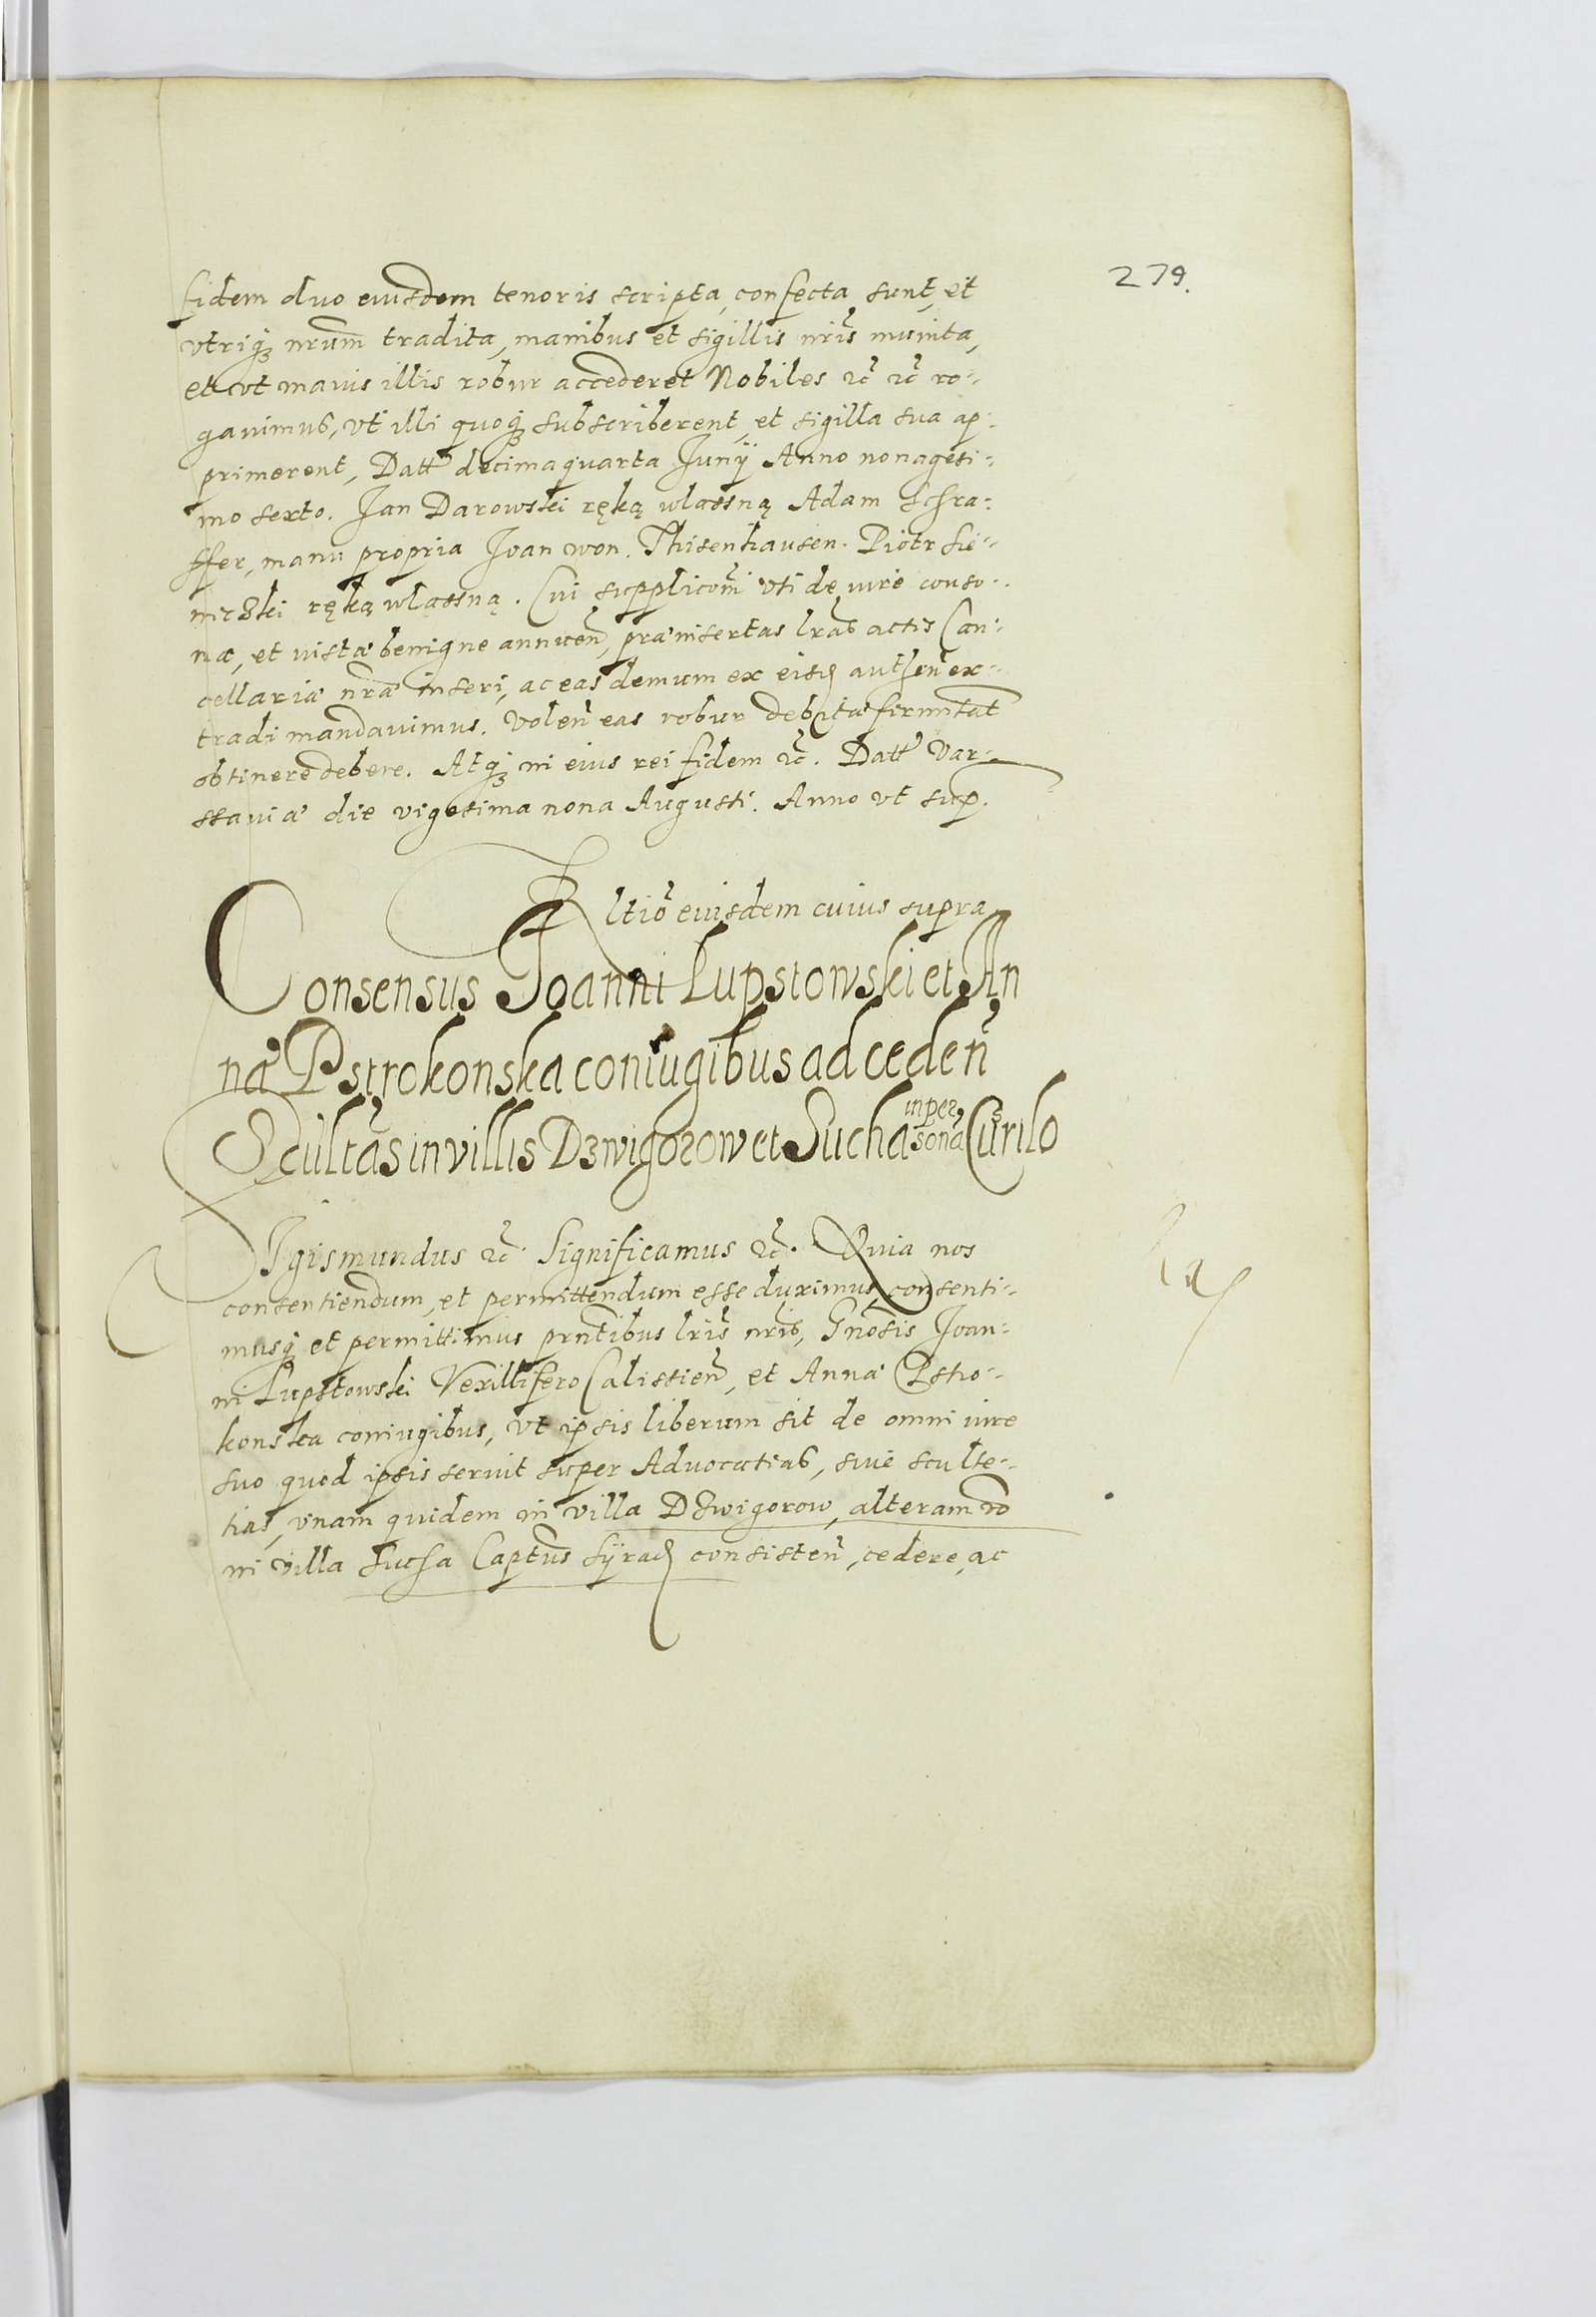 279.
fidem duo eiusdem tenoris scripta, confecta sunt, et
vtriq; nrum tradita, manibus et sigillis nris munita,
et vt maius illis robur accederet Nobiles &c &c ro-
gauimus, vt illi quoq; subscriberent, et sigilla sua ap-
primerent, Datt decima quarta Junÿ Anno nonagesi-
mo sexto. Jan Darowski ręką wlassną Adam Schra-
ffer, manu propria Joan won. Thisenhausen. Piotr Sie-
niczki ręką wlassną. Cui suppliconi vti de iure conso-
næ, et iustæ benigne annuen, præinsertas lras actis Can-
cellariæ nræ inseri, ac eas demum ex eisd authen ex-
tradi mandauimus. Volen eas robur debitæ firmitat
obtinere debere. Atq; in eius rei fidem &c. Datt Var-
ssauiæ die vigesima nona Augusti. Anno vt sup.
Rltio eiusdem cuius supra
Consensus Joanni Lupstowski et An
næ Pstrokonska coniugibus ad ceden
Scultas in villis Dzwigorow et Sucha in per sona Curilo
SIgismundus &c. Significamus &c. Quia nos
consentiendum, et permittendum esse duximus, consenti-
musq; et permittimus prntibus lris nris, Gnosis Joan-
ni Lupstowski Vexillifero Calissien, et Annæ Pstro-
konska coniugibus, vt ipsis liberum sit de omni iure
suo quod ipsis seruit super Aduocatias, siue sculte-
tias, vnam quidem in villa Dzwigorow, alteram vo
in villa Sucha Captus Syrad consisten, cedere, ac